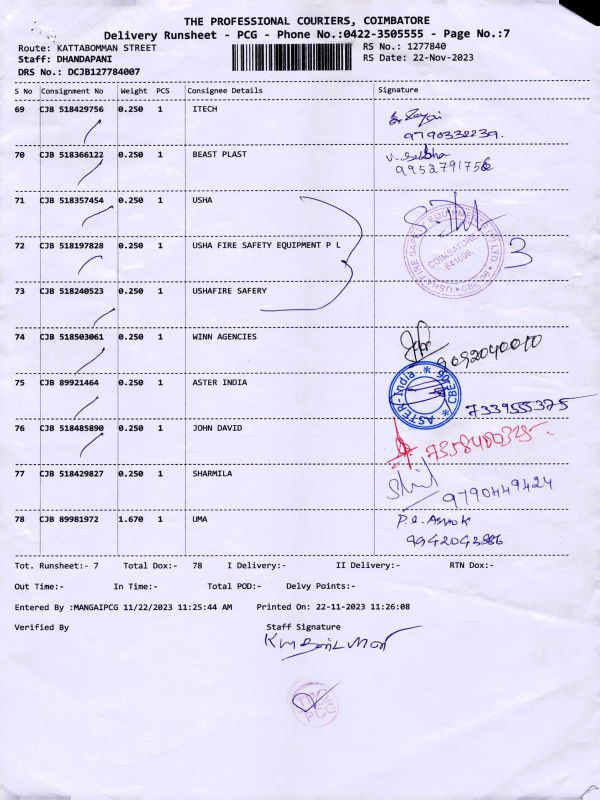 THE PROFESSIONAL COURIERS, COIMBATORE
Delivery Runsheet - PCG - Phone No.:0422-3505555 - Page No.:7
Route: KATTABOMMAN STREET RS No.: 1277840
Staff: DHANDAPANI RS Date: 22-Nov-2023
DRS No.: DCJB127784007
S No Consignment No Weight PCS Consignee Details Signature
69 CJB 518429756 0.250 1 ITECH
9790332239.
70 CJB 518366122 0.250 1 BEAST PLAST
9952791756
71 CJB 518357454 0.250 1 USHA
72 CJB 518197828 0.250 1 USHA FIRE SAFETY EQUIPMENT P L
USHA FIRE SAFETY EQUIPMENTS (P) LTD.
COIMBATORE
641006.
CBE-06
3
73 CJB 518240523 0.250 1 USHAFIRE SAFERY
74 CJB 518503061 0.250 1 WINN AGENCIES
9092040010
75 CJB 89921464 0.250 1 ASTER INDIA
ASTER-India * CBE-06 *
7339555375
76 CJB 518485890 0.250 1 JOHN DAVID
7358400325.
77 CJB 518429827 0.250 1 SHARMILA
9790449424
78 CJB 89981972 1.670 1 UMA
P.S. ASHOK
9942043986
Tot. Runsheet:- 7 Total Dox:- 78 I Delivery:- II Delivery:- RTN Dox:-
Out Time:- In Time:- Total POD:- Delvy Points:-
Entered By :MANGAIPCG 11/22/2023 11:25:44 AM Printed On: 22-11-2023 11:26:08
Verified By Staff Signature
PCG